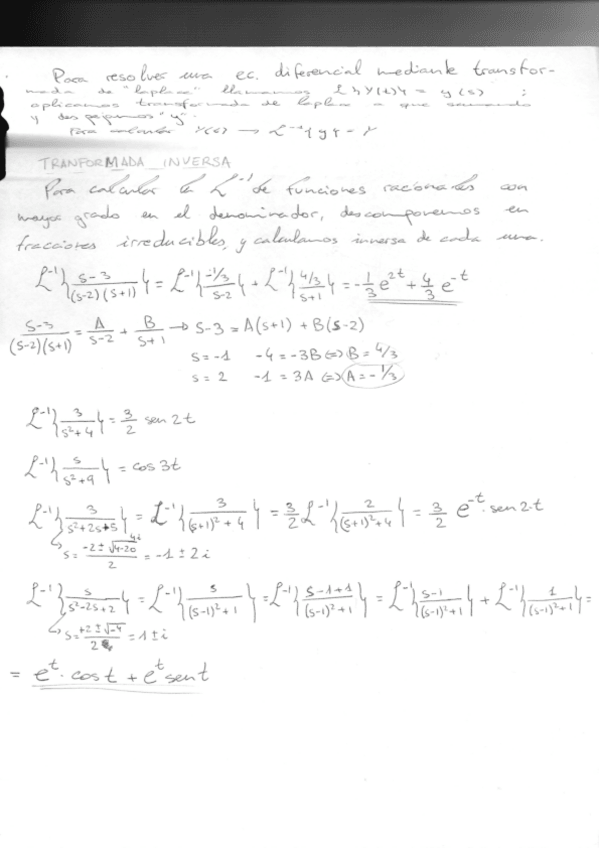 Para resolver una ec. diferencial mediante transfor-
mada de "laplace" llamamos L{Y(t)} = y(s) ;
aplicamos transformada de laplace a
y despejamos "y".
Para calcular Y(t) → L⁻¹{y} = Y
TRANFORMADA INVERSA
Para calcular la L⁻¹ de funciones racionales con
mayor grado en el denominador, descomponemos en
fracciones irreducibles, y calculamos inversa de cada una.
L⁻¹{(s-3)/((s-2)(s+1))} = L⁻¹{(-1/3)/(s-2)} + L⁻¹{(4/3)/(s+1)} = -1/3 e^(2t) + 4/3 e^(-t)
(s-3)/((s-2)(s+1)) = A/(s-2) + B/(s+1) → s-3 = A(s+1) + B(s-2)
s=-1 -4=-3B ⇔ B=4/3
s=2 -1=3A ⇔ A=-1/3
L⁻¹{3/(s²+4)} = 3/2 sen 2t
L⁻¹{s/(s²+9)} = cos 3t
L⁻¹{3/(s²+2s+5)} = L⁻¹{3/((s+1)²+4)} = 3/2 L⁻¹{2/((s+1)²+4)} = 3/2 e^(-t)·sen 2·t
4i
↳ s = (-2±√(4-20))/2 = -1±2i
L⁻¹{s/(s²-2s+2)} = L⁻¹{s/((s-1)²+1)} = L⁻¹{(s-1+1)/((s-1)²+1)} = L⁻¹{(s-1)/((s-1)²+1)} + L⁻¹{1/((s-1)²+1)} =
↳ s = (+2±√-4)/2 = 1±i
= e^t·cos t + e^t sen t